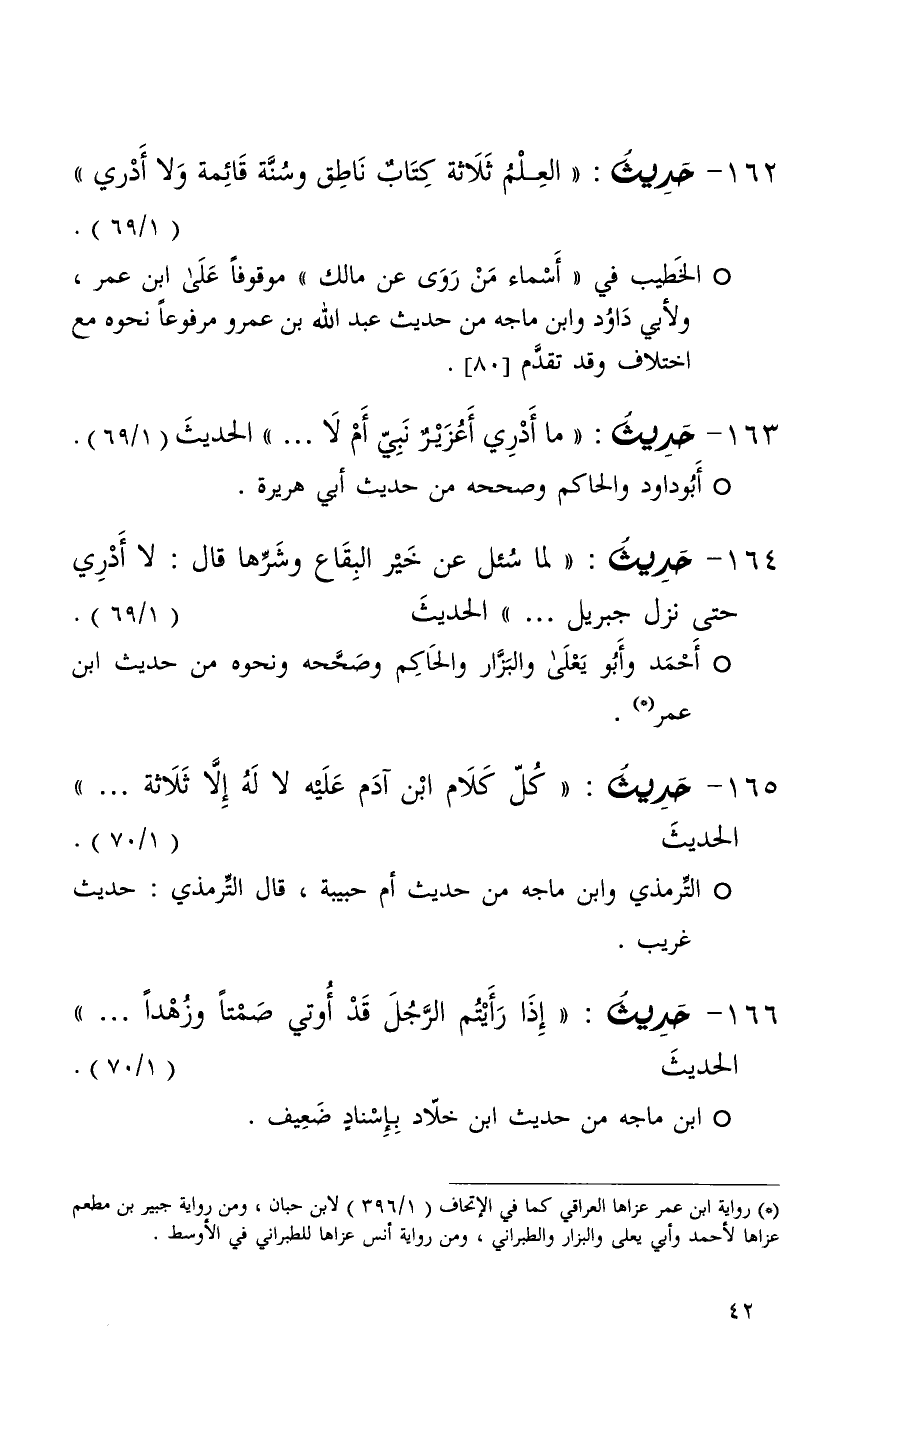 ١٦٢- حَدِيثُ : « العِـلْمُ ثَلَاثة كِتَابٌ نَاطِق وسُنَّة قَائِمة وَلا أَدْري »
( ٦٩/١ ) .
○ الخَطِيب في « أَسْماء مَنْ رَوَى عن مالك » موقوفاً عَلَىٰ ابن عمر ،
ولأبي دَاوُد وابن ماجه من حديث عبد الله بن عمرو مرفوعاً نحوه مع
اختلاف وقد تقدَّم [٨٠] .
١٦٣- حَدِيثُ : « ما أَدْرِي أَعُزَيْرٌ نَبِيّ أَمْ لَا ... » الحديثَ ( ٦٩/١ ) .
○ أَبُوداود والحاكم وصححه من حديث أبي هريرة .
١٦٤- حَدِيثُ : « لما سُئل عن خَيْر البِقَاع وشَرِّها قال : لا أَدْرِي
حتى نزل جبريل ... » الحديثَ ( ٦٩/١ ) .
○ أَحْمَد وأَبُو يَعْلَىٰ والبَزَّار والحَاكِم وصَحَّحه ونحوه من حديث ابن
عمر(٥) .
١٦٥- حَدِيثُ : « كُلّ كَلَام ابْن آدَم عَلَيْه لا لَهُ إِلَّا ثَلَاثة ... »
الحديثَ ( ٧٠/١ ) .
○ التِّرمذي وابن ماجه من حديث أم حبيبة ، قال التِّرمذي : حديث
غريب .
١٦٦- حَدِيثُ : « إِذَا رَأَيْتُم الرَّجُلَ قَدْ أُوتي صَمْتاً وزُهْداً ... »
الحديثَ ( ٧٠/١ ) .
○ ابن ماجه من حديث ابن خلّاد بِإِسْنادٍ ضَعِيف .
(٥) رواية ابن عمر عزاها العراقي كما في الإتحاف ( ٣٩٦/١ ) لابن حبان ، ومن رواية جبير بن مطعم
عزاها لأحمد وأبي يعلى والبزار والطبراني ، ومن رواية أنس عزاها للطبراني في الأوسط .
٤٢